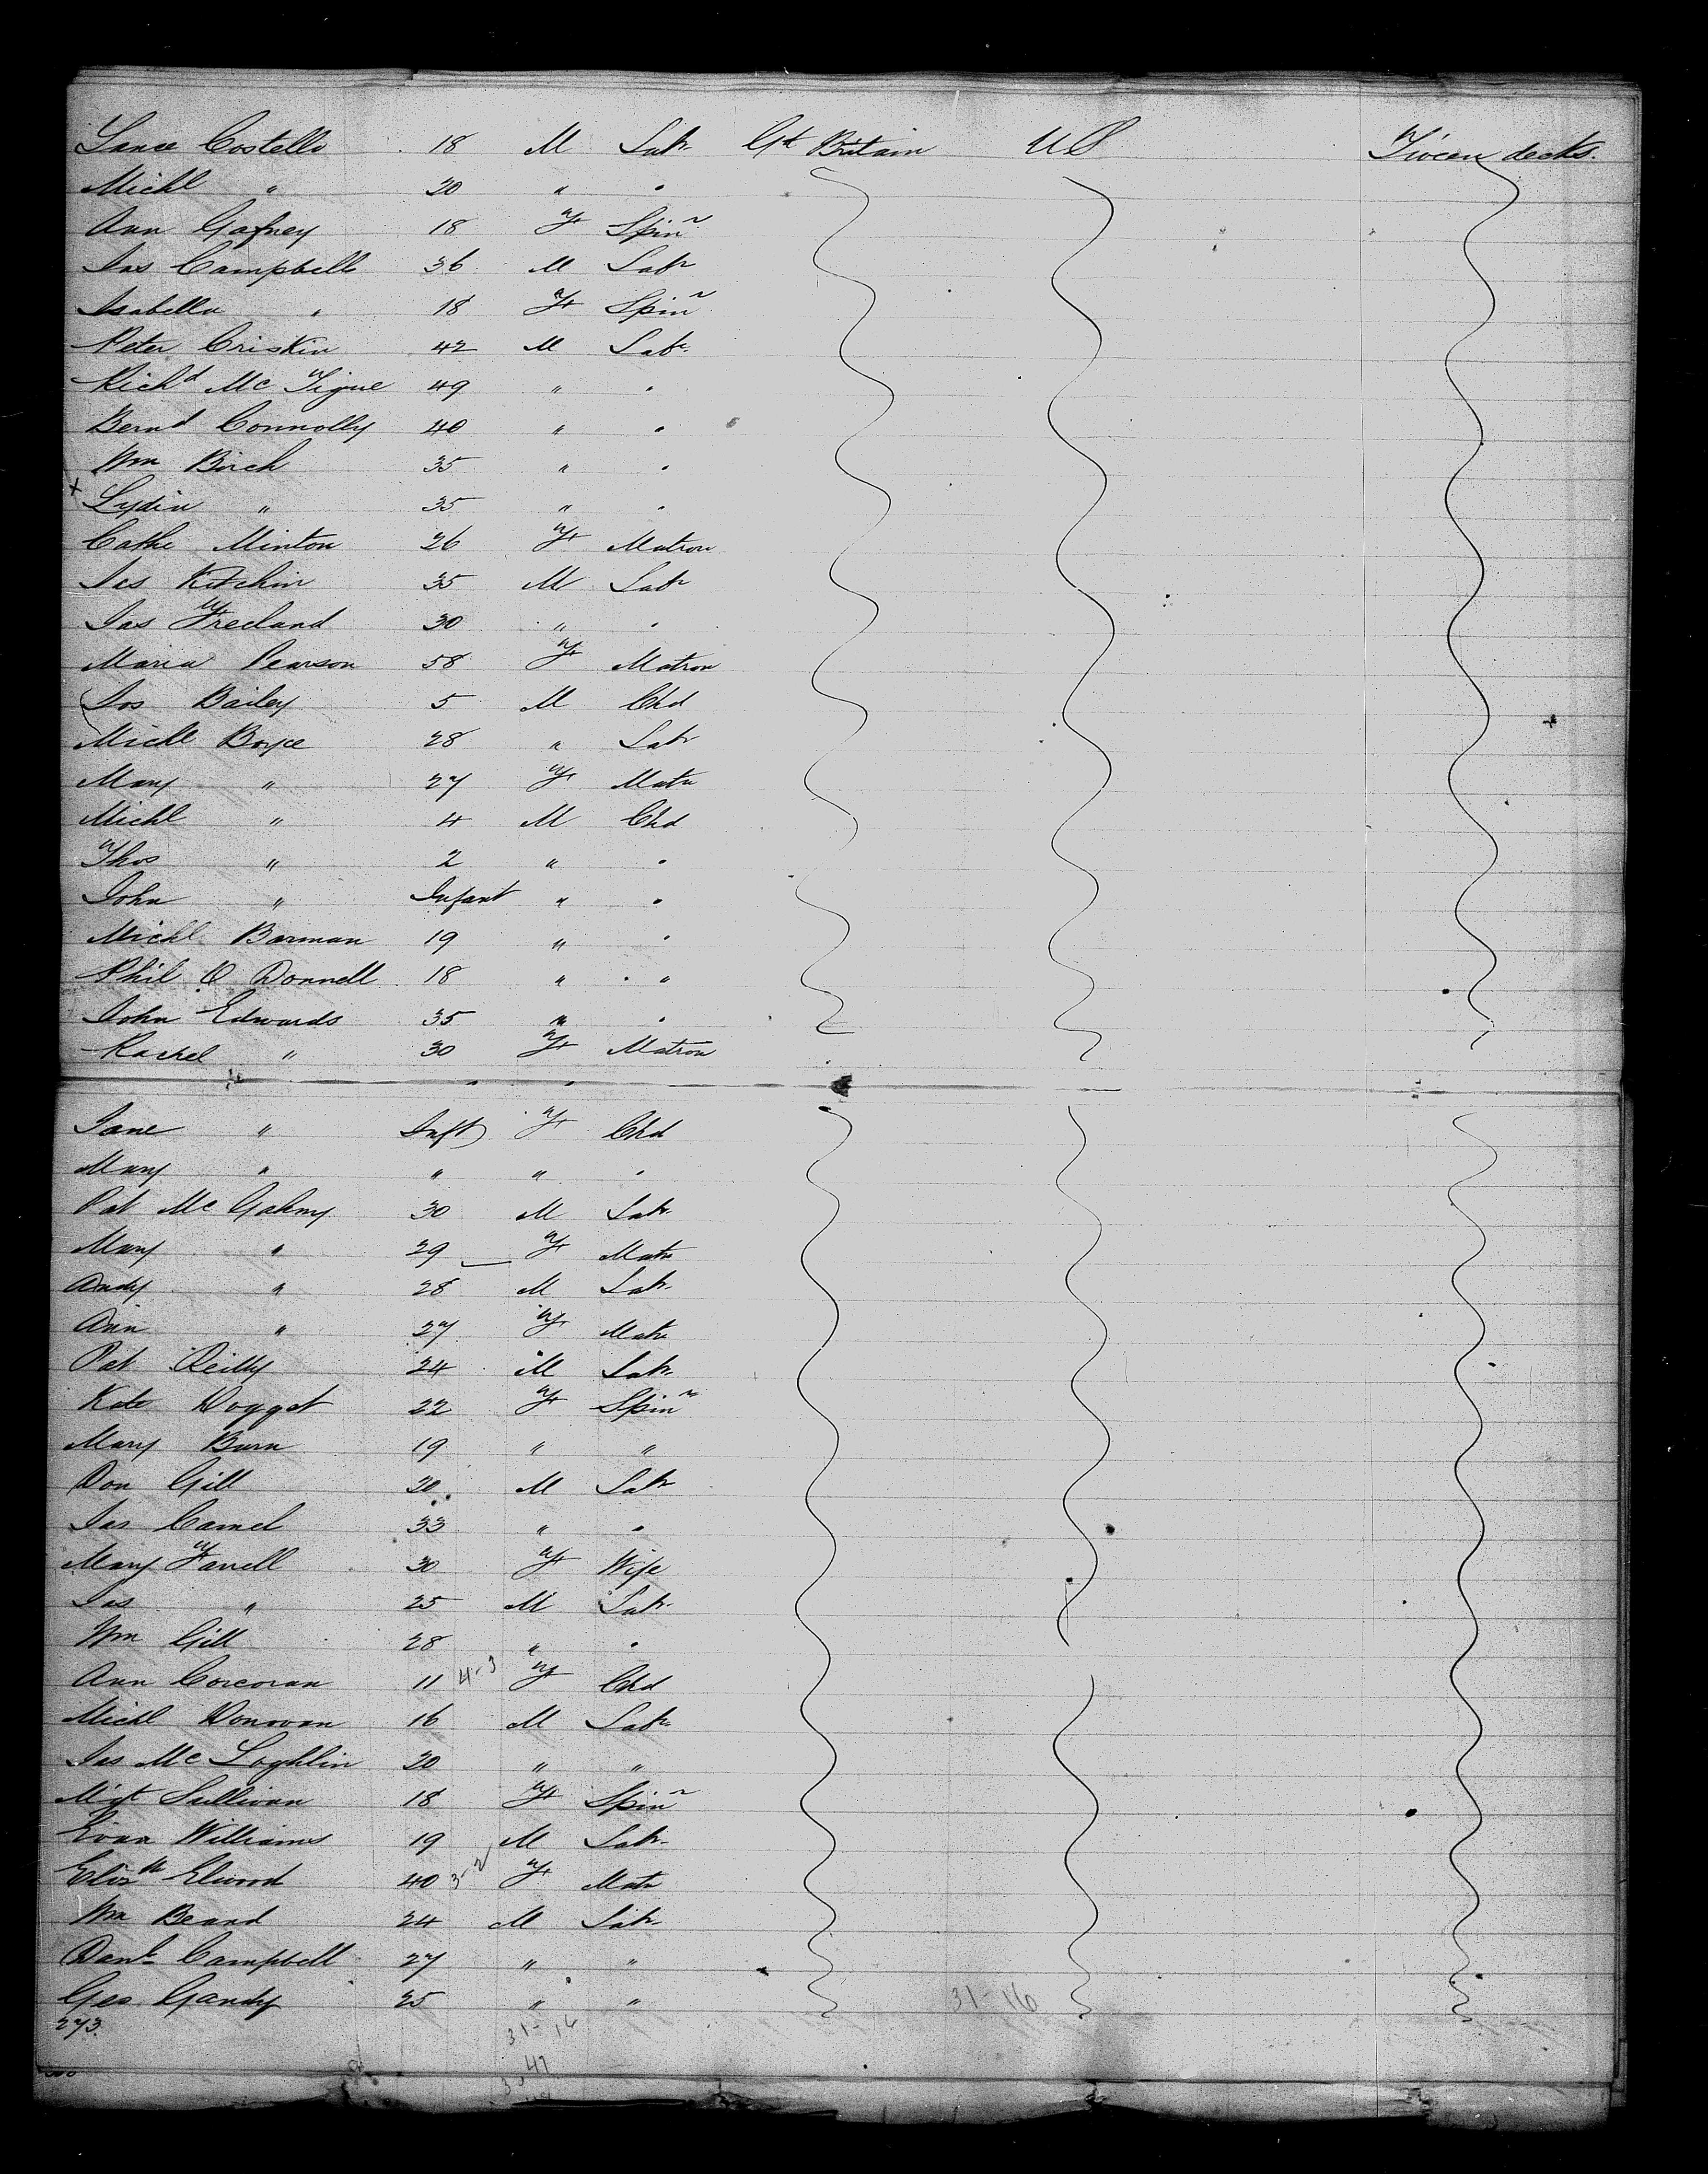 Costello 18 M Labr Gt Britain US Tween decks.
Michl " 20 " "
Ann Gafney 18 F Spinr
Jas Campbell 36 M Labr
Isabella " 18 F Spinr
Peter Criskin 42 M Labr
Richd Mc Tigue 49 " "
Bernd Connolly 40 " "
Wm Birch 35 " "
+ Lydia " 35 " "
Cathe Minton 26 F Matron
Jas Kitchin 35 M Labr
Jas Freeland 30 " "
Maria Pearson 58 F Matron
Jos Bailey 5 M Chd
Michl Boyce 28 " Labr
Mary " 27 F Matn
Michl " 4 M Chd
Thos " 2 " "
John " Infant " "
Michl Barman 19 " "
Phil O Donnell 18 " "
John Edwards 35 " "
Rachel " 30 F Matron
Jane " Inft F Chd
Mary " " " "
Pat Mc Gahny 30 M Labr
Mary " 29 F Matn
Andy " 28 M Labr
Ann " 27 F Matn
Pat Reilly 24 M Labr
Kate Dogget 22 F Spinr
Mary Burn 19 " "
Don Gill 20 M Labr
Jas Camel 33 " "
Mary Farrell 30 F Wife
Jas " 25 M Labr
Wm Gill 28 " "
Ann Corcoran 11 4-3 F Chd
Michl Donovan 16 M Labr
Jas Mc Loghlin 20 " "
Mgt Sullivan 18 F Spinr
Evan Williams 19 M Labr
Elizth Elwood 40 3-2 F Matn
Wm Beard 24 M Labr
Danl Campbell 27 " "
Geo Gandy 25 " " 31-16
273. 31-16
47